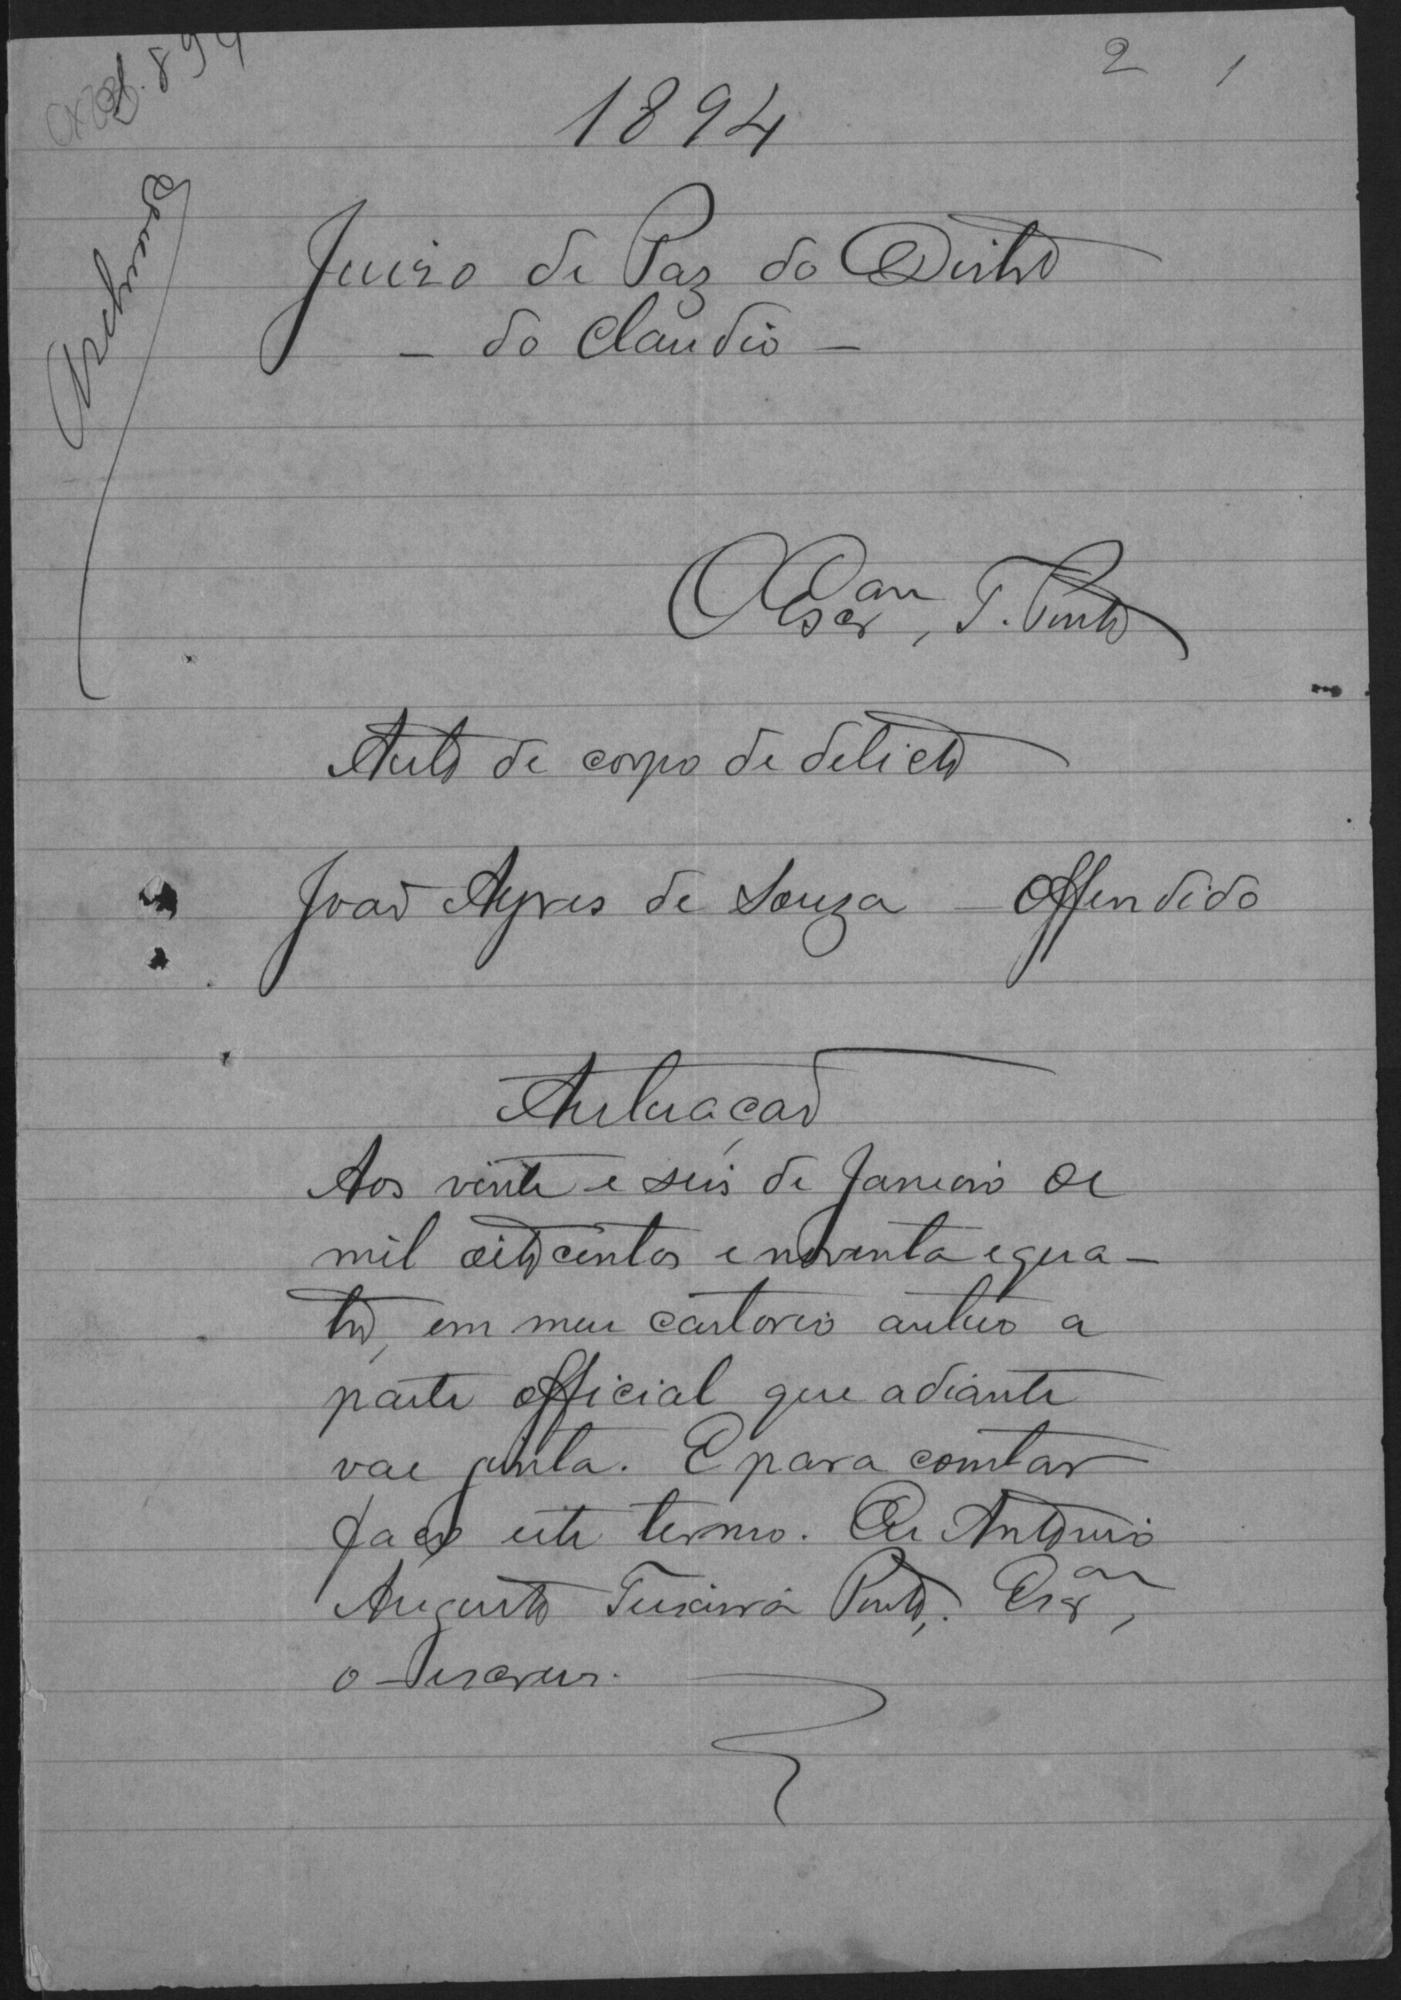 2 1
1894
Juizo de Paz do Distrº
- do Claudio -
O Escr.am, T. Pinto
Auto de corpo de delicto
João Ayres de Souza - Offendido
Autuação
Aos vinte e seis de Janeiro de
mil oitocentos e noventa e qua-
tro, em meu cartorio autuo a
parte official que adiante
vae junta. E para constar
faço este termo. Eu Antonio
Augusto Teixeira Pinto, Escr.am,
o escrevi.